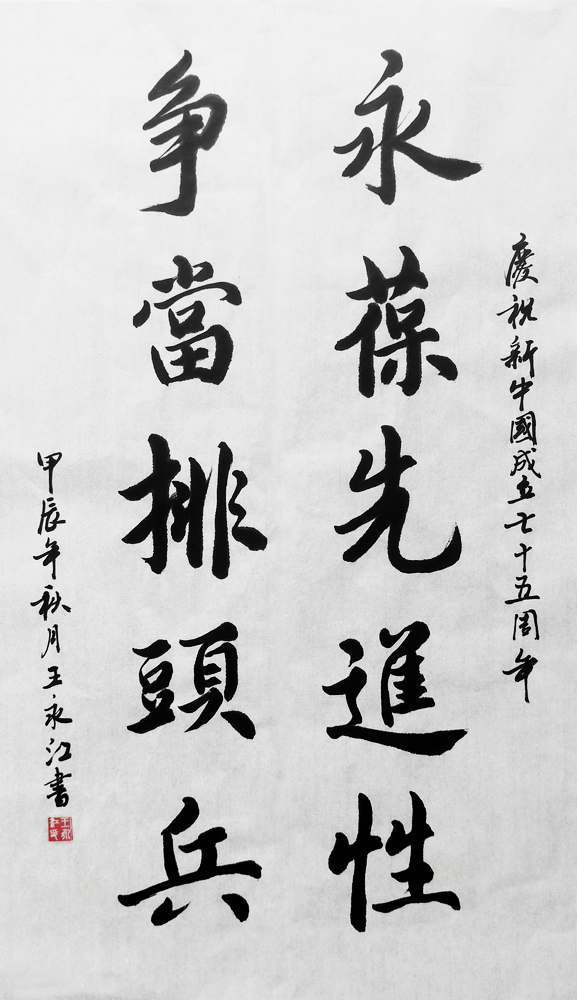 慶祝新中國成立七十五周年
永葆先進性
争當排頭兵
甲辰年秋月王永江書